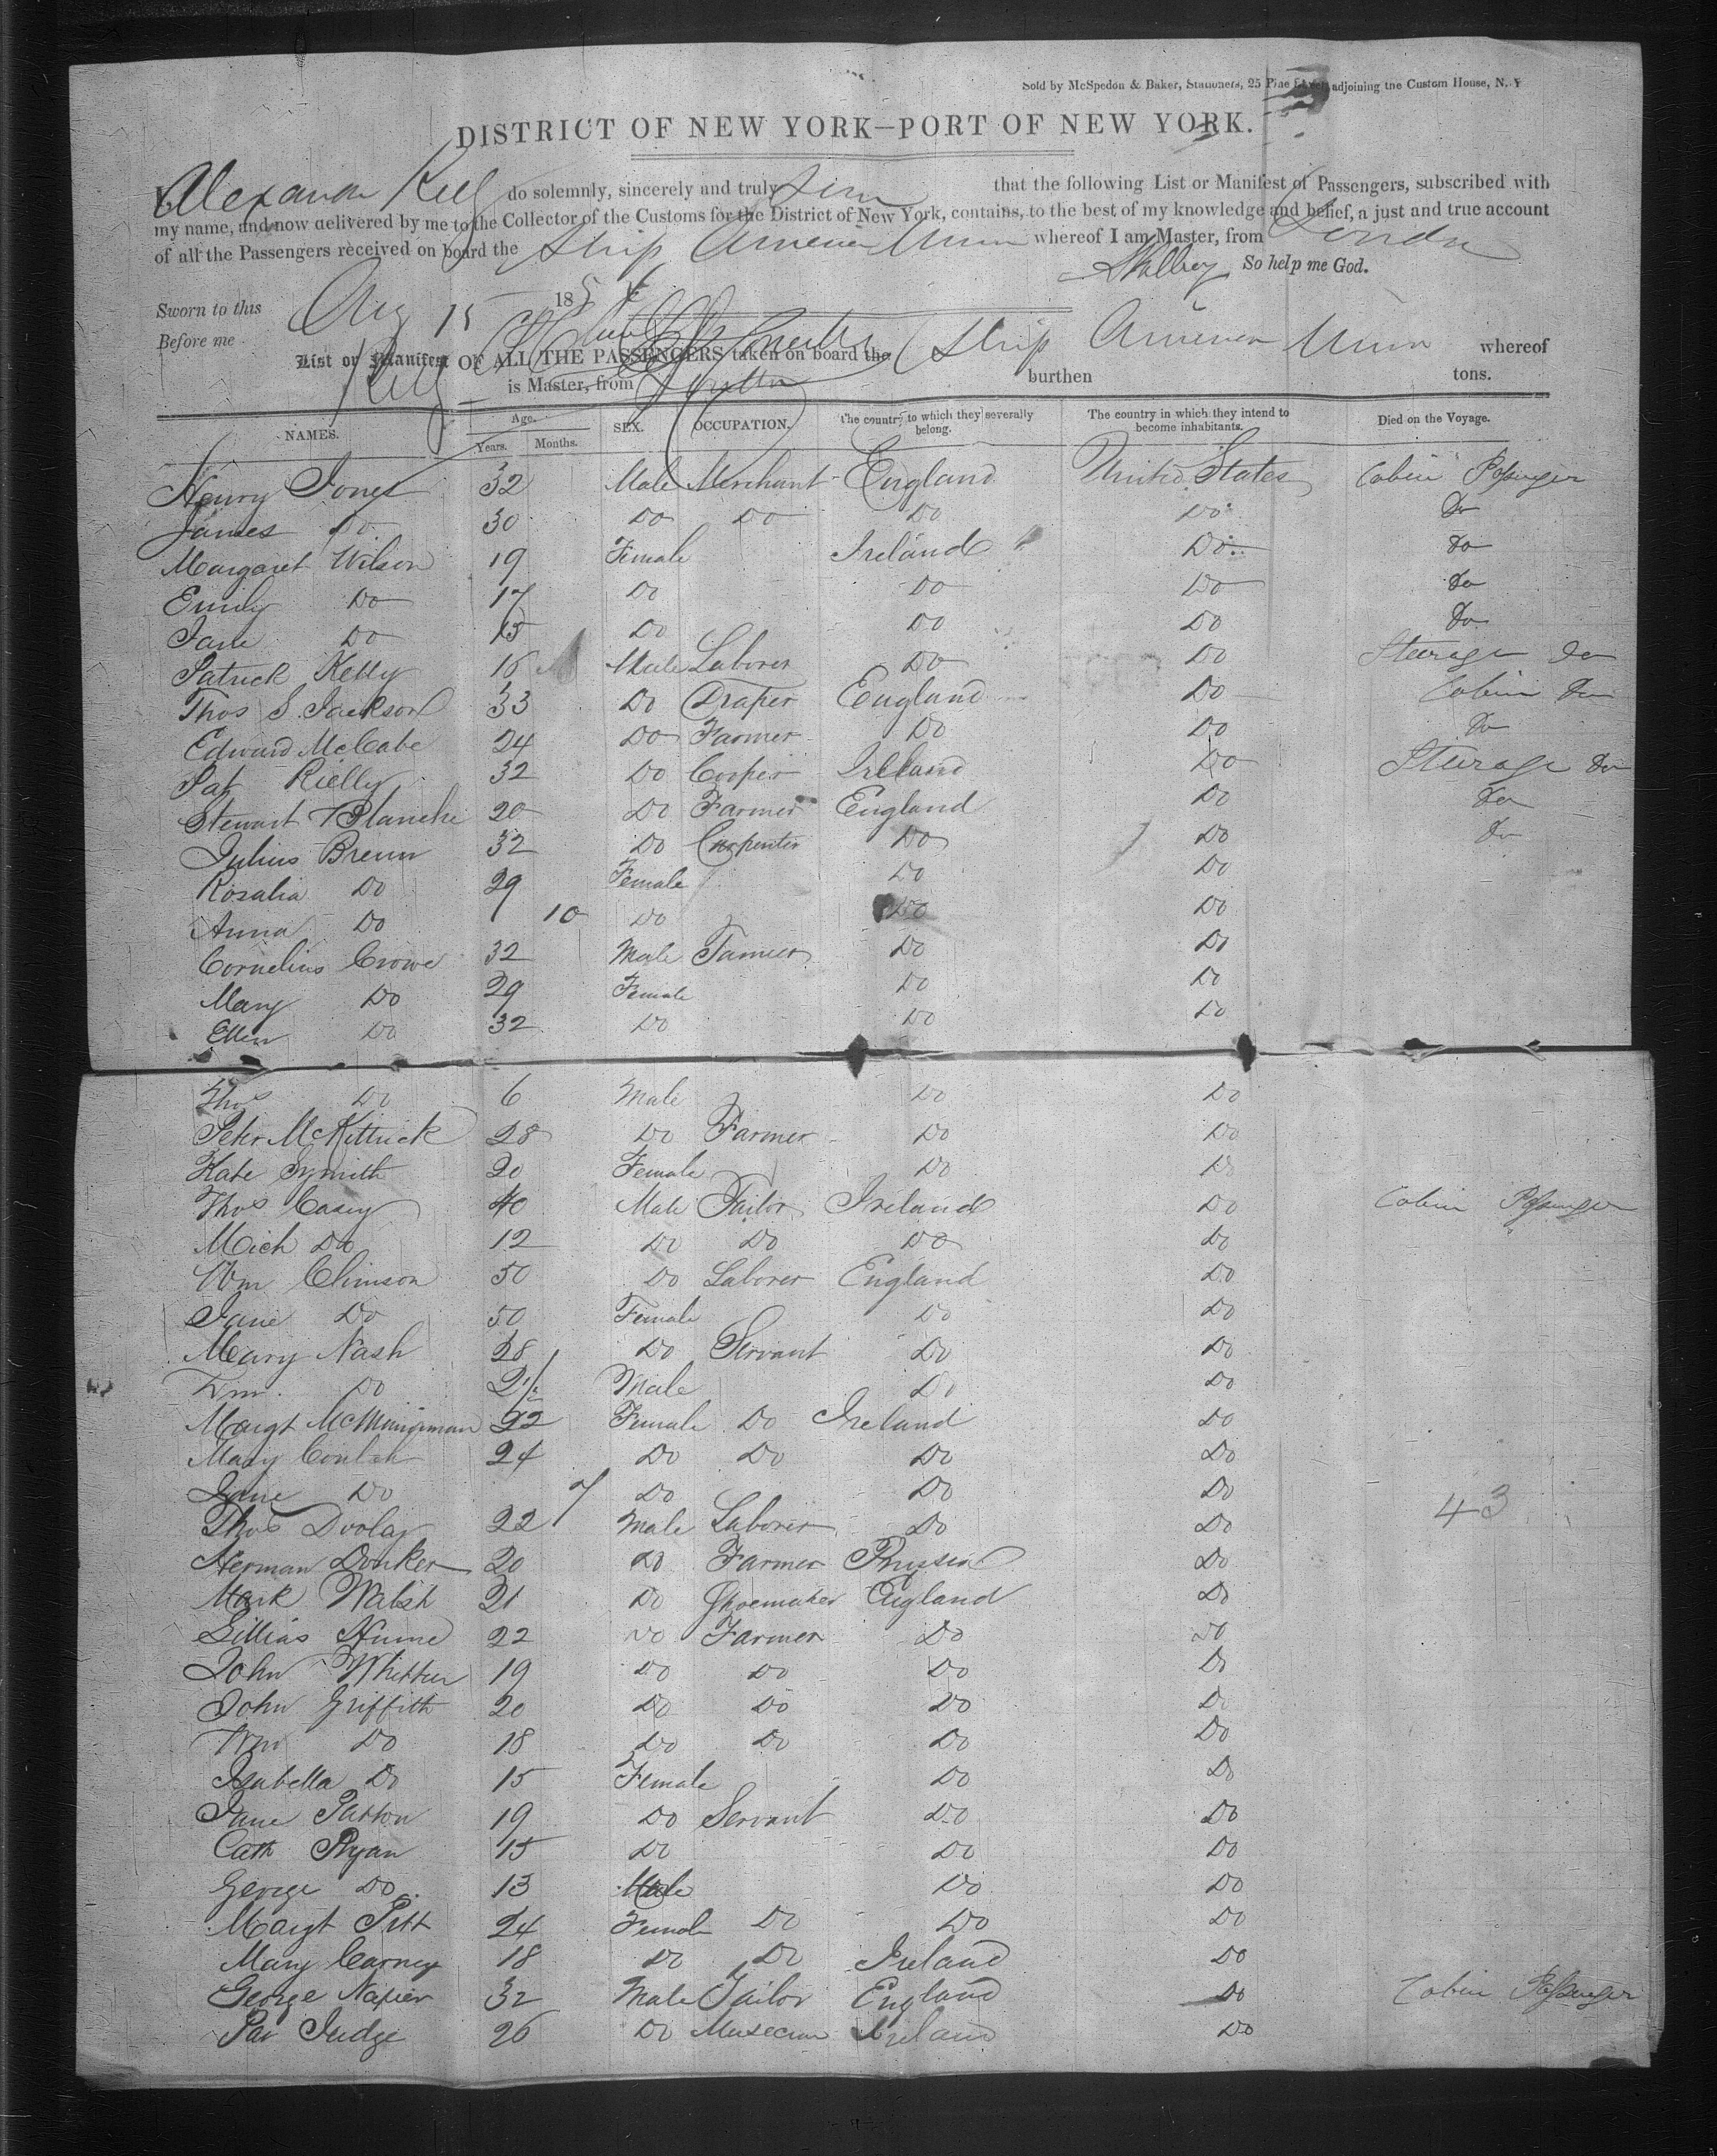 Sold by McSpedon & Baker, Stationers, 25 Pine Street, adjoining the Custom House, N. Y
DISTRICT OF NEW YORK—PORT OF NEW YORK.
I, Alexander do solemnly, sincerely and truly that the following List or Manifest of Passengers, subscribed with
my name, and now delivered by me to the Collector of the Customs for the District of New York, contains, to the best of my knowledge and belief, a just and true account
of all the Passengers received on board the Ship whereof I am Master, from
So help me God.
Sworn to this Aug 15 1854
Before me
List or Manifest OF ALL THE PASSENGERS taken on board the Ship whereof
is Master, from burthen tons.
NAMES. Age. Years. Months. SEX. OCCUPATION. The country to which they severally belong. The country in which they intend to become inhabitants. Died on the Voyage.
Henry Jones 32 Male Merchant England United States Cabin Passenger
James Do 30 Do Do Do Do Do
Margaret Wilson 19 Female Ireland Do Do
Emily Do 17 Do Do Do Do
Jane Do 15 Do Do Do Do
Patrick Kelly 16 Male Laborer Do Do Steerage Do
Thos S. Jackson 33 Do Draper England Do Cabin Do
Edward McCabe 24 Do Farmer Do Do Do
Pat Rielly 32 Do Cooper Ireland Do Steerage Do
Stewart Blanche 20 Do Farmer England Do Do
Julius Breun 32 Do Carpenter Do Do Do
Rosalia Do 29 Female Do Do
Anna Do 10 Do Do Do
Cornelius Crowe 32 Male Do Do
Mary Do 29 Female Do Do
Ellen Do 32 Do Do Do
Thos Do 6 Male Do Do
Peter McKittrick 28 Do Farmer Do Do
Kate Smith 20 Female Do Do
Thos Casey 40 Male Tailor Ireland Do Cabin Passenger
Mich Do 12 Do Do Do Do
Wm Climson 50 Do Laborer England Do
Jane Do 50 Female Do Do
Mary Nash 28 Do Servant Do Do
Wm. Do 2 1/2 Male Do Do
Margt 22 Female Do Ireland Do
Mary 24 Do Do Do Do
Jane Do 7 Do Do Do
Thos Doolay 22 Male Laborer Do Do 43
Herman Donker 20 Do Farmer Prussia Do
Mark Walsh 21 Do Shoemaker England Do
Gillias Hume 22 Do Farmer Do Do
John 19 Do Do Do Do
John Griffith 20 Do Do Do Do
Wm Do 18 Do Do Do Do
Isabella Do 15 Female Do Do
Jane Patton 19 Do Servant Do Do
Cath Ryan 15 Do Do Do
George Do 13 Male Do Do
Margt Pitt 24 Female Do Do Do
Mary Carney 18 Do Do Ireland Do
George Napier 32 Male Tailor England Do Cabin Passenger
Pat Judge 26 Do Musecian Ireland Do